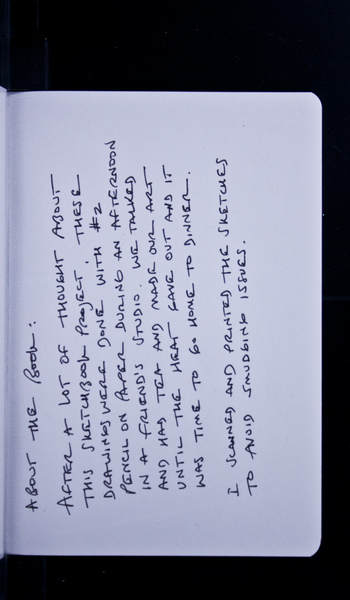 ABOUT THE BOOK:
AFTER A LOT OF THOUGHT ABOUT
THIS SKETCHBOOK PROJECT, THESE
DRAWINGS WERE DONE WITH #2
PENCIL ON PAPER DURING AN AFTERNOON
IN A FRIEND'S STUDIO. WE TALKED
AND HAD TEA AND MADE OUR ART
UNTIL THE HEAT GAVE OUT AND IT
WAS TIME TO GO HOME TO DINNER.
I SCANNED AND PRINTED THE SKETCHES
TO AVOID SMUDGING ISSUES.